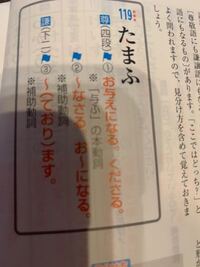 ［尊敬語にも謙譲語にも
語にもなるもの］があります。「ここではどっち？」と
よく問われますので、見分け方を含めて覚えておきま
しょう。
119
たまふ
尊（四段）
①お与えになる。くださる。
※「与ふ」の本動詞
②〜なさる。お〜になる。
※補助動詞
謙（下二）
③〜（ており）ます。
※補助動詞